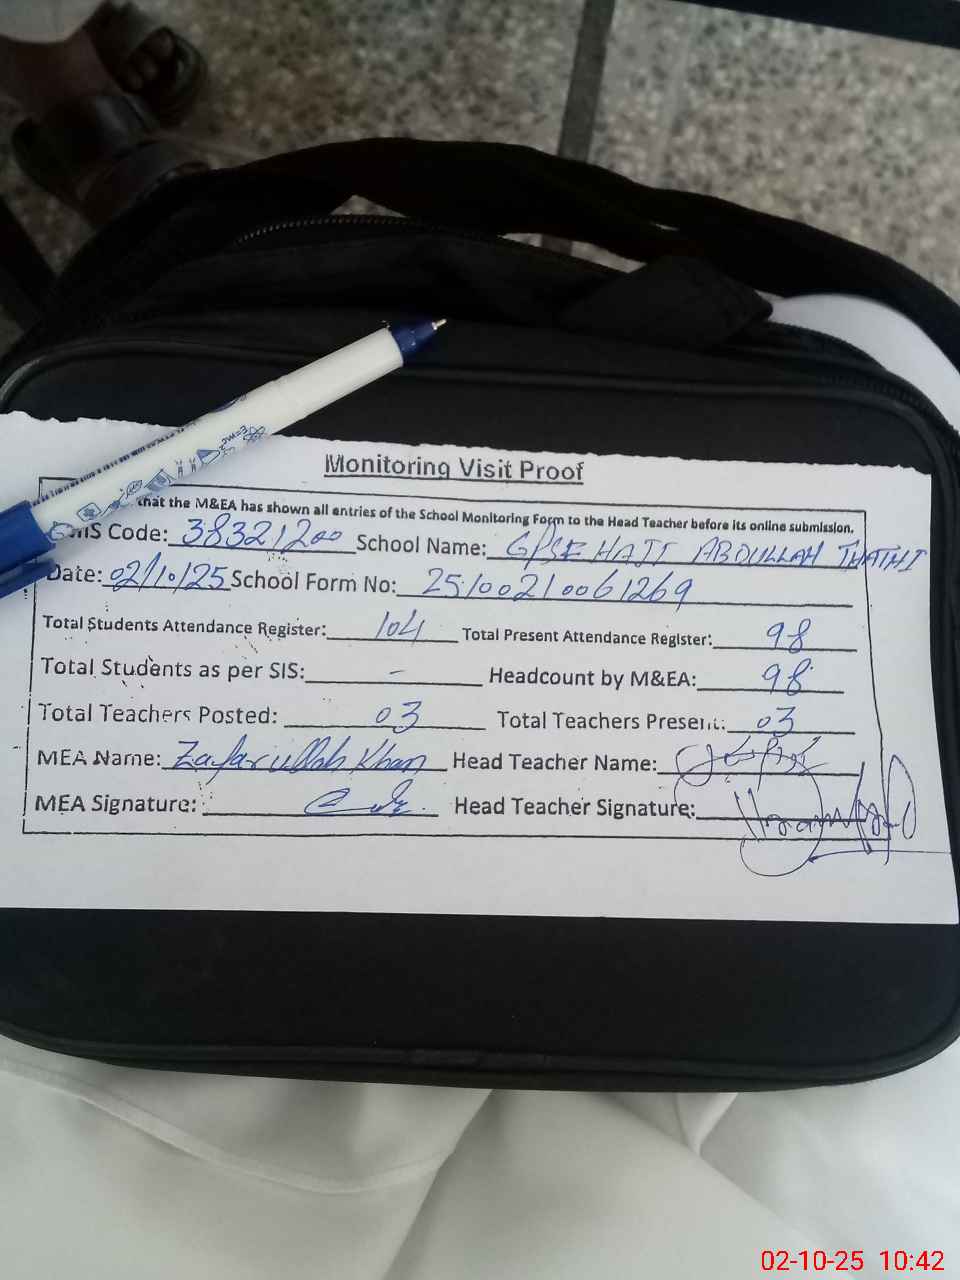 Monitoring Visit Proof
that the M&EA has shown all entries of the School Monitoring Form to the Head Teacher before its online submission.
Code: 38321200 School Name: GPSE HAJI ABDULLAH THATHI
Date: 02/10/25 School Form No: 25100210061269
Total Students Attendance Register: 104 Total Present Attendance Register: 98
Total Students as per SIS: - Headcount by M&EA: 98
Total Teachers Posted: 03 Total Teachers Present: 03
MEA Name: Zafarullah Khan Head Teacher Name:
MEA Signature: Head Teacher Signature:
E=mc²
02-10-25 10:42